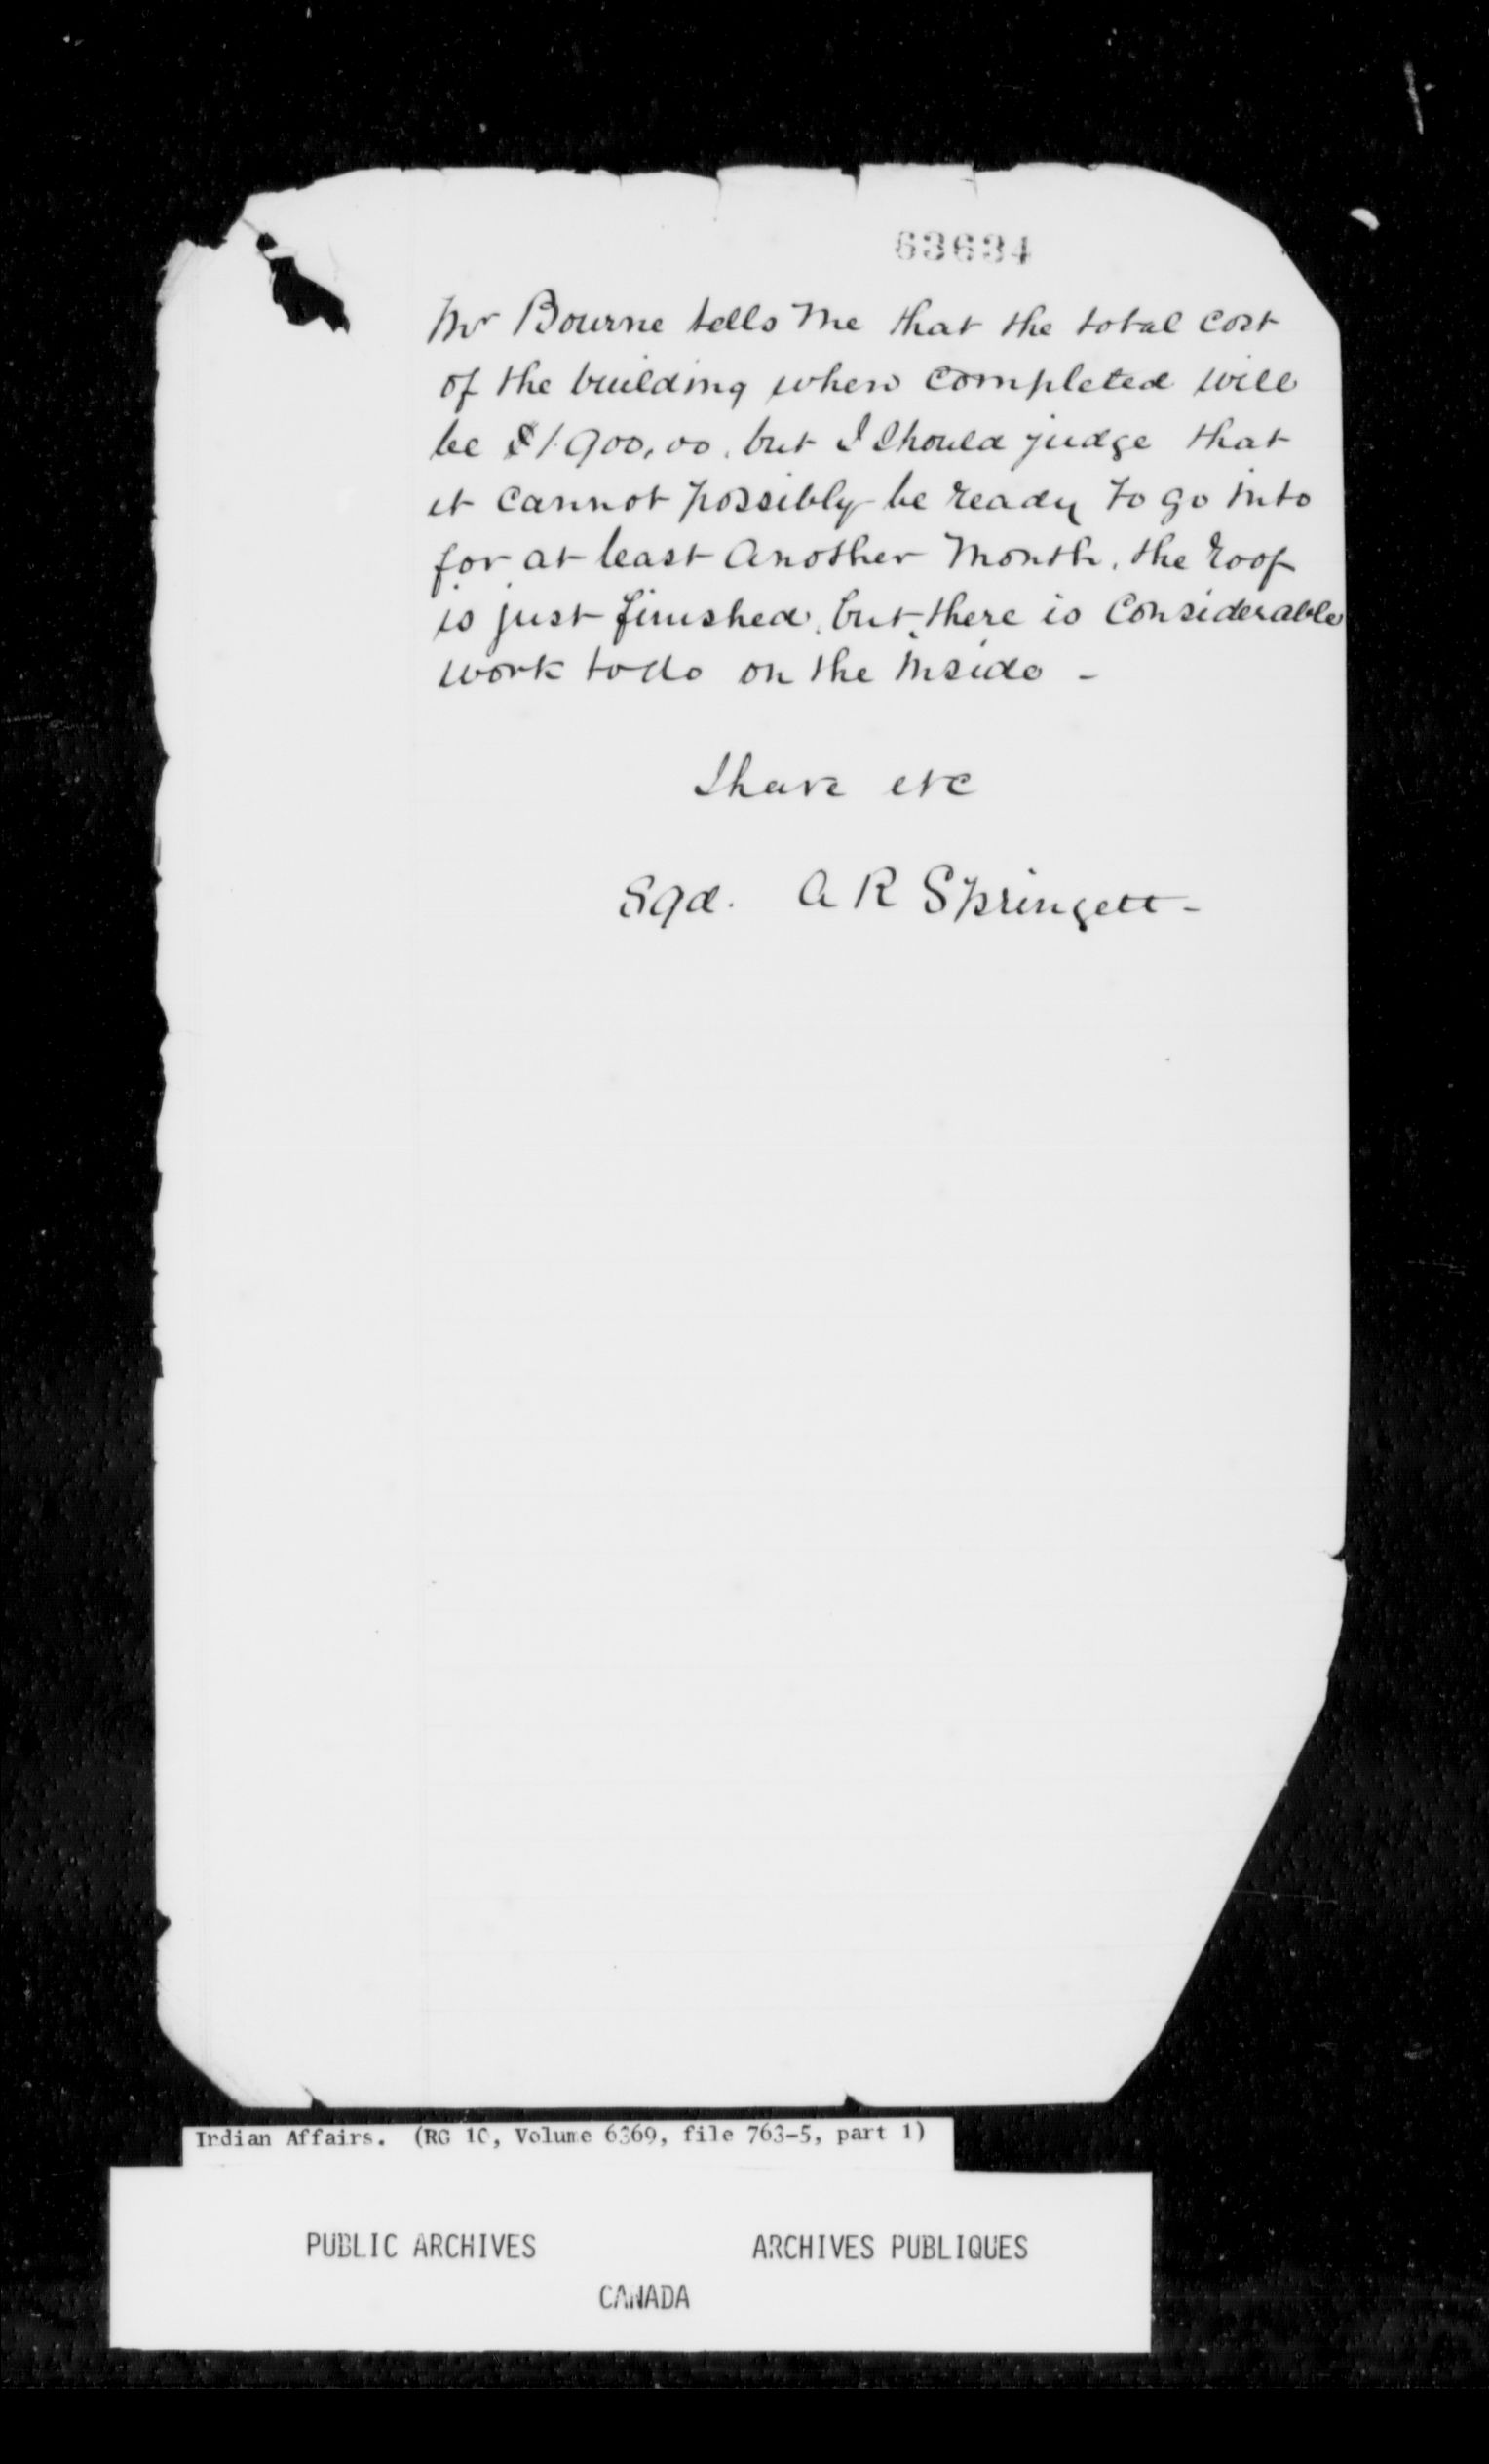 63634
Mr Bourne tells me that the total cost
of the building when completed will
be $1900,00, but I should judge that
it cannot possibly be ready to go into
for at least another month, the roof
is just finished, but there is considerable
work to do on the inside -
I have etc
Sgd. A R Springett -
Indian Affairs. (RG 10, Volume 6369, file 763-5, part 1)
PUBLIC ARCHIVES ARCHIVES PUBLIQUES
CANADA